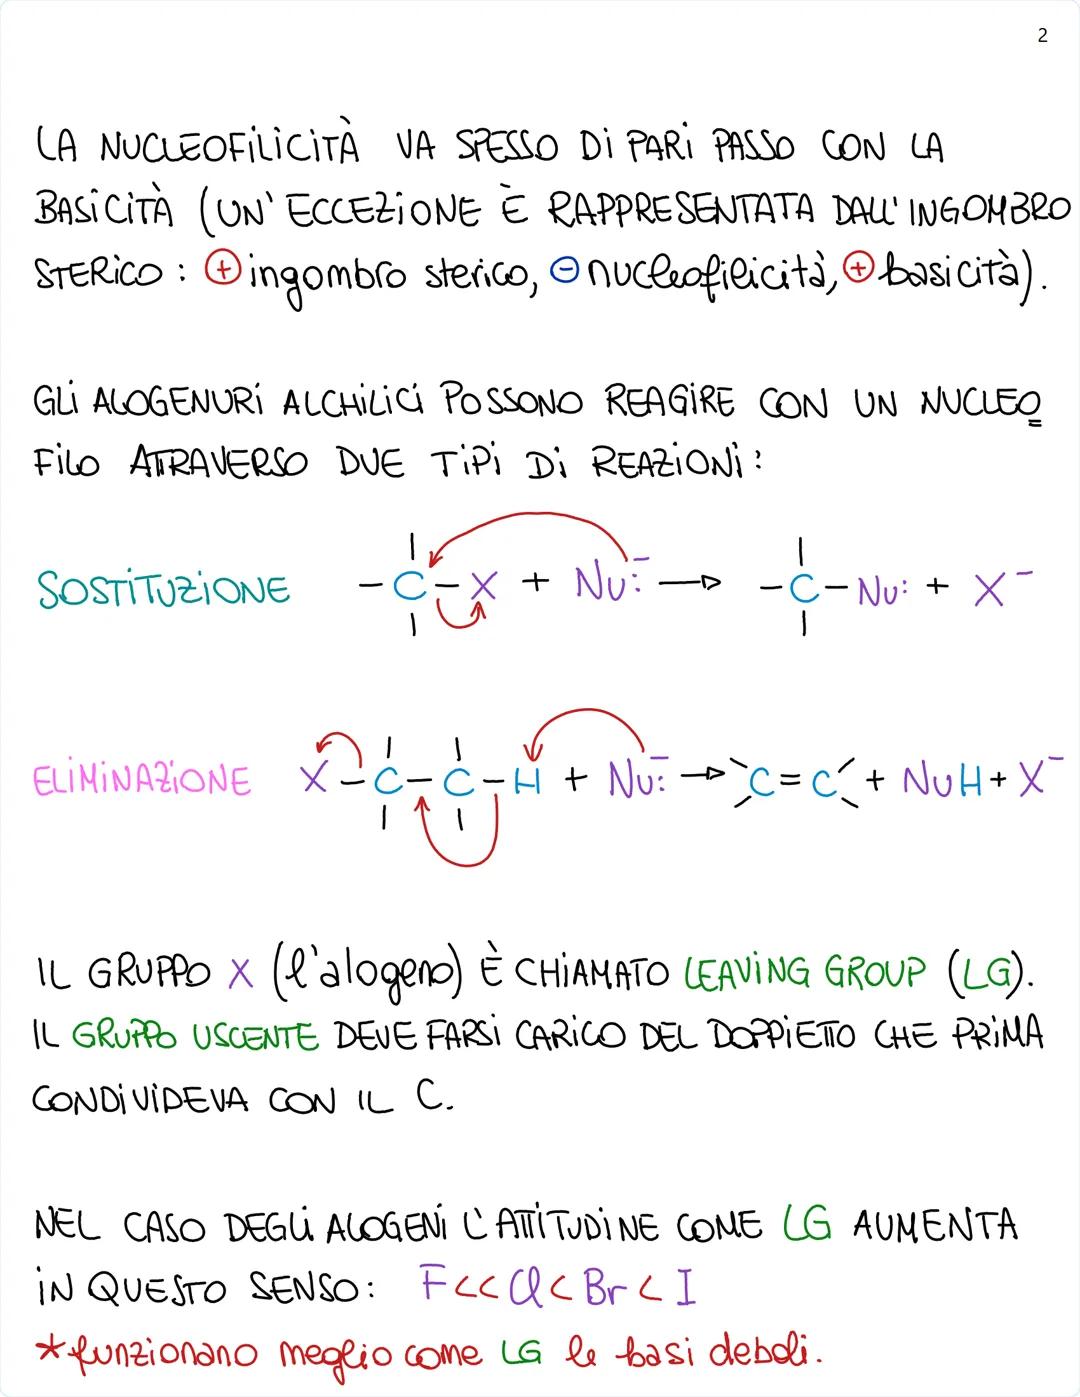 2
LA NUCLEOFILICITÀ VA SPESSO DI PARI PASSO CON LA
BASICITÀ (UN' ECCEZIONE È RAPPRESENTATA DALL' INGOMBRO
STERICO: ⊕ ingombro sterico, ⊖ nucleofilicità, ⊕ basicità).
GLI ALOGENURI ALCHILICI POSSONO REAGIRE CON UN NUCLEO
FILO ATTRAVERSO DUE TIPI DI REAZIONI:
SOSTITUZIONE -C-X + Nu:⁻ → -C-Nu: + X⁻
ELIMINAZIONE X-C-C-H + Nu:⁻ → C=C + NuH + X⁻
IL GRUPPO X (l'alogeno) È CHIAMATO LEAVING GROUP (LG).
IL GRUPPO USCENTE DEVE FARSI CARICO DEL DOPPIETTO CHE PRIMA
CONDIVIDEVA CON IL C.
NEL CASO DEGLI ALOGENI L'ATTITUDINE COME LG AUMENTA
IN QUESTO SENSO: F<<Cl<Br<I
*funzionano meglio come LG le basi deboli.